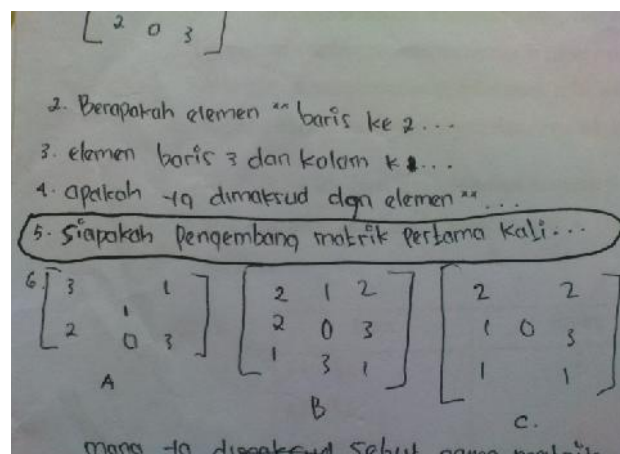 2 0 3
2. Berapakah elemen "" baris ke 2...
3. elemen baris 3 dan kolom k
4. apakah yg dimaksud dgn elemen ""...
5. Siapakah Pengembang matrik Pertama kali...
6. 3 1 2 1 2 2 2
1 2 0 3 1 0 3
2 0 3 1 3 1 1 1
A B C.
mana yg dimaksud sebut